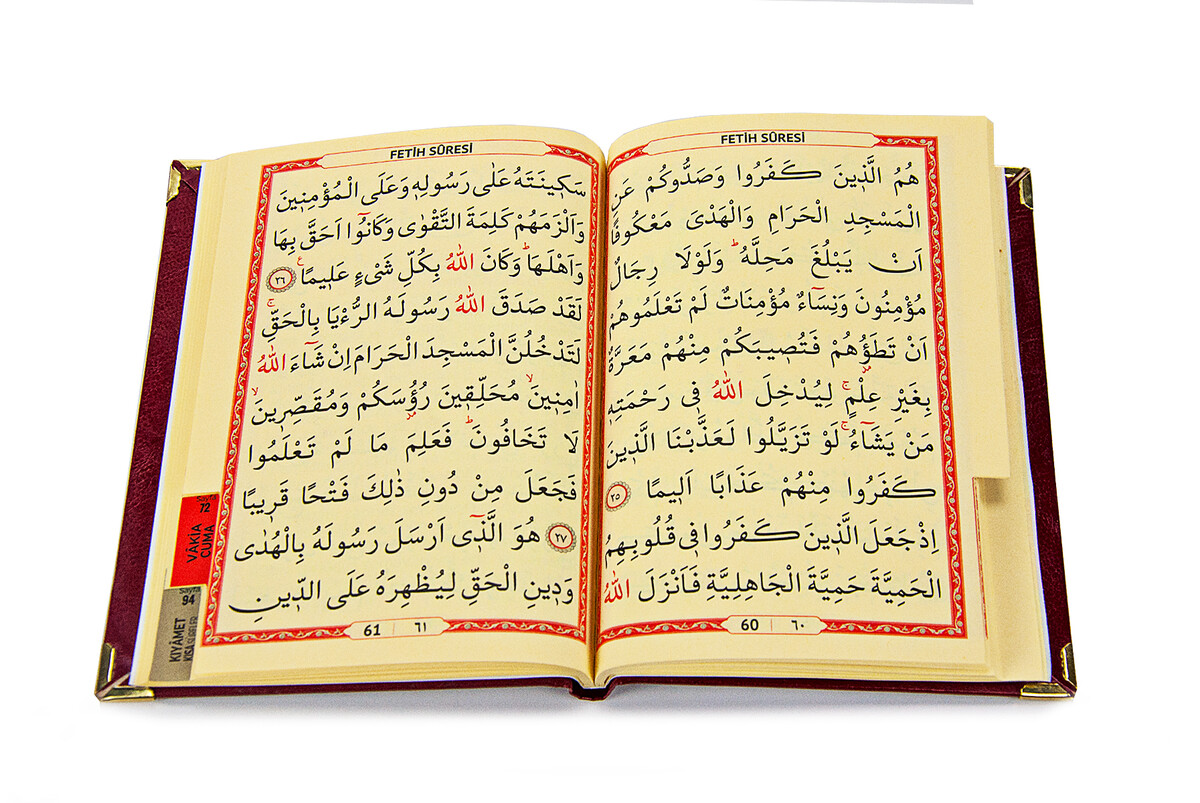 FETİH SÛRESİ
هُمُ الَّذ۪ينَ كَفَرُوا وَصَدُّوكُمْ عَنِ
الْمَسْجِدِ الْحَرَامِ وَالْهَدْىَ مَعْكُوفًا
اَنْ يَبْلُغَ مَحِلَّهُۜ وَلَوْلَا رِجَالٌ
مُؤْمِنُونَ وَنِسَٓاءٌ مُؤْمِنَاتٌ لَمْ تَعْلَمُوهُمْ
اَنْ تَطَؤُ۫هُمْ فَتُص۪يبَكُمْ مِنْهُمْ مَعَرَّةٌ
بِغَيْرِ عِلْمٍۚ لِيُدْخِلَ اللّٰهُ ف۪ى رَحْمَتِه۪
مَنْ يَشَٓاءُۚ لَوْ تَزَيَّلُوا لَعَذَّبْنَا الَّذ۪ينَ
كَفَرُوا مِنْهُمْ عَذَابًا اَل۪يمًا ﴿٢٥﴾
اِذْ جَعَلَ الَّذ۪ينَ كَفَرُوا ف۪ى قُلُوبِهِمُ
الْحَمِيَّةَ حَمِيَّةَ الْجَاهِلِيَّةِ فَاَنْزَلَ اللّٰهُ
60 | ٦٠
FETİH SÛRESİ
سَك۪ينَتَهُ عَلٰى رَسُولِه۪ وَعَلَى الْمُؤْمِن۪ينَ
وَاَلْزَمَهُمْ كَلِمَةَ التَّقْوٰى وَكَانُٓوا اَحَقَّ بِهَا
وَاَهْلَهَاۜ وَكَانَ اللّٰهُ بِكُلِّ شَىْءٍ عَل۪يمًاۚ ﴿٢٦﴾
لَقَدْ صَدَقَ اللّٰهُ رَسُولَهُ الرُّءْيَا بِالْحَقِّۚ
لَتَدْخُلُنَّ الْمَسْجِدَ الْحَرَامَ اِنْ شَٓاءَ اللّٰهُ
اٰمِن۪ينَۙ مُحَلِّق۪ينَ رُؤُ۫سَكُمْ وَمُقَصِّر۪ينَۙ
لَا تَخَافُونَۜ فَعَلِمَ مَا لَمْ تَعْلَمُوا
فَجَعَلَ مِنْ دُونِ ذٰلِكَ فَتْحًا قَر۪يبًا
﴿٢٧﴾ هُوَ الَّذ۪ٓى اَرْسَلَ رَسُولَهُ بِالْهُدٰى
وَد۪ينِ الْحَقِّ لِيُظْهِرَهُ عَلَى الدّ۪ينِ
61 | ٦١
Sayfa
72
VÂKIA
CUMA
Sayfa
94
KIYÂMET
KISA SÛRELER